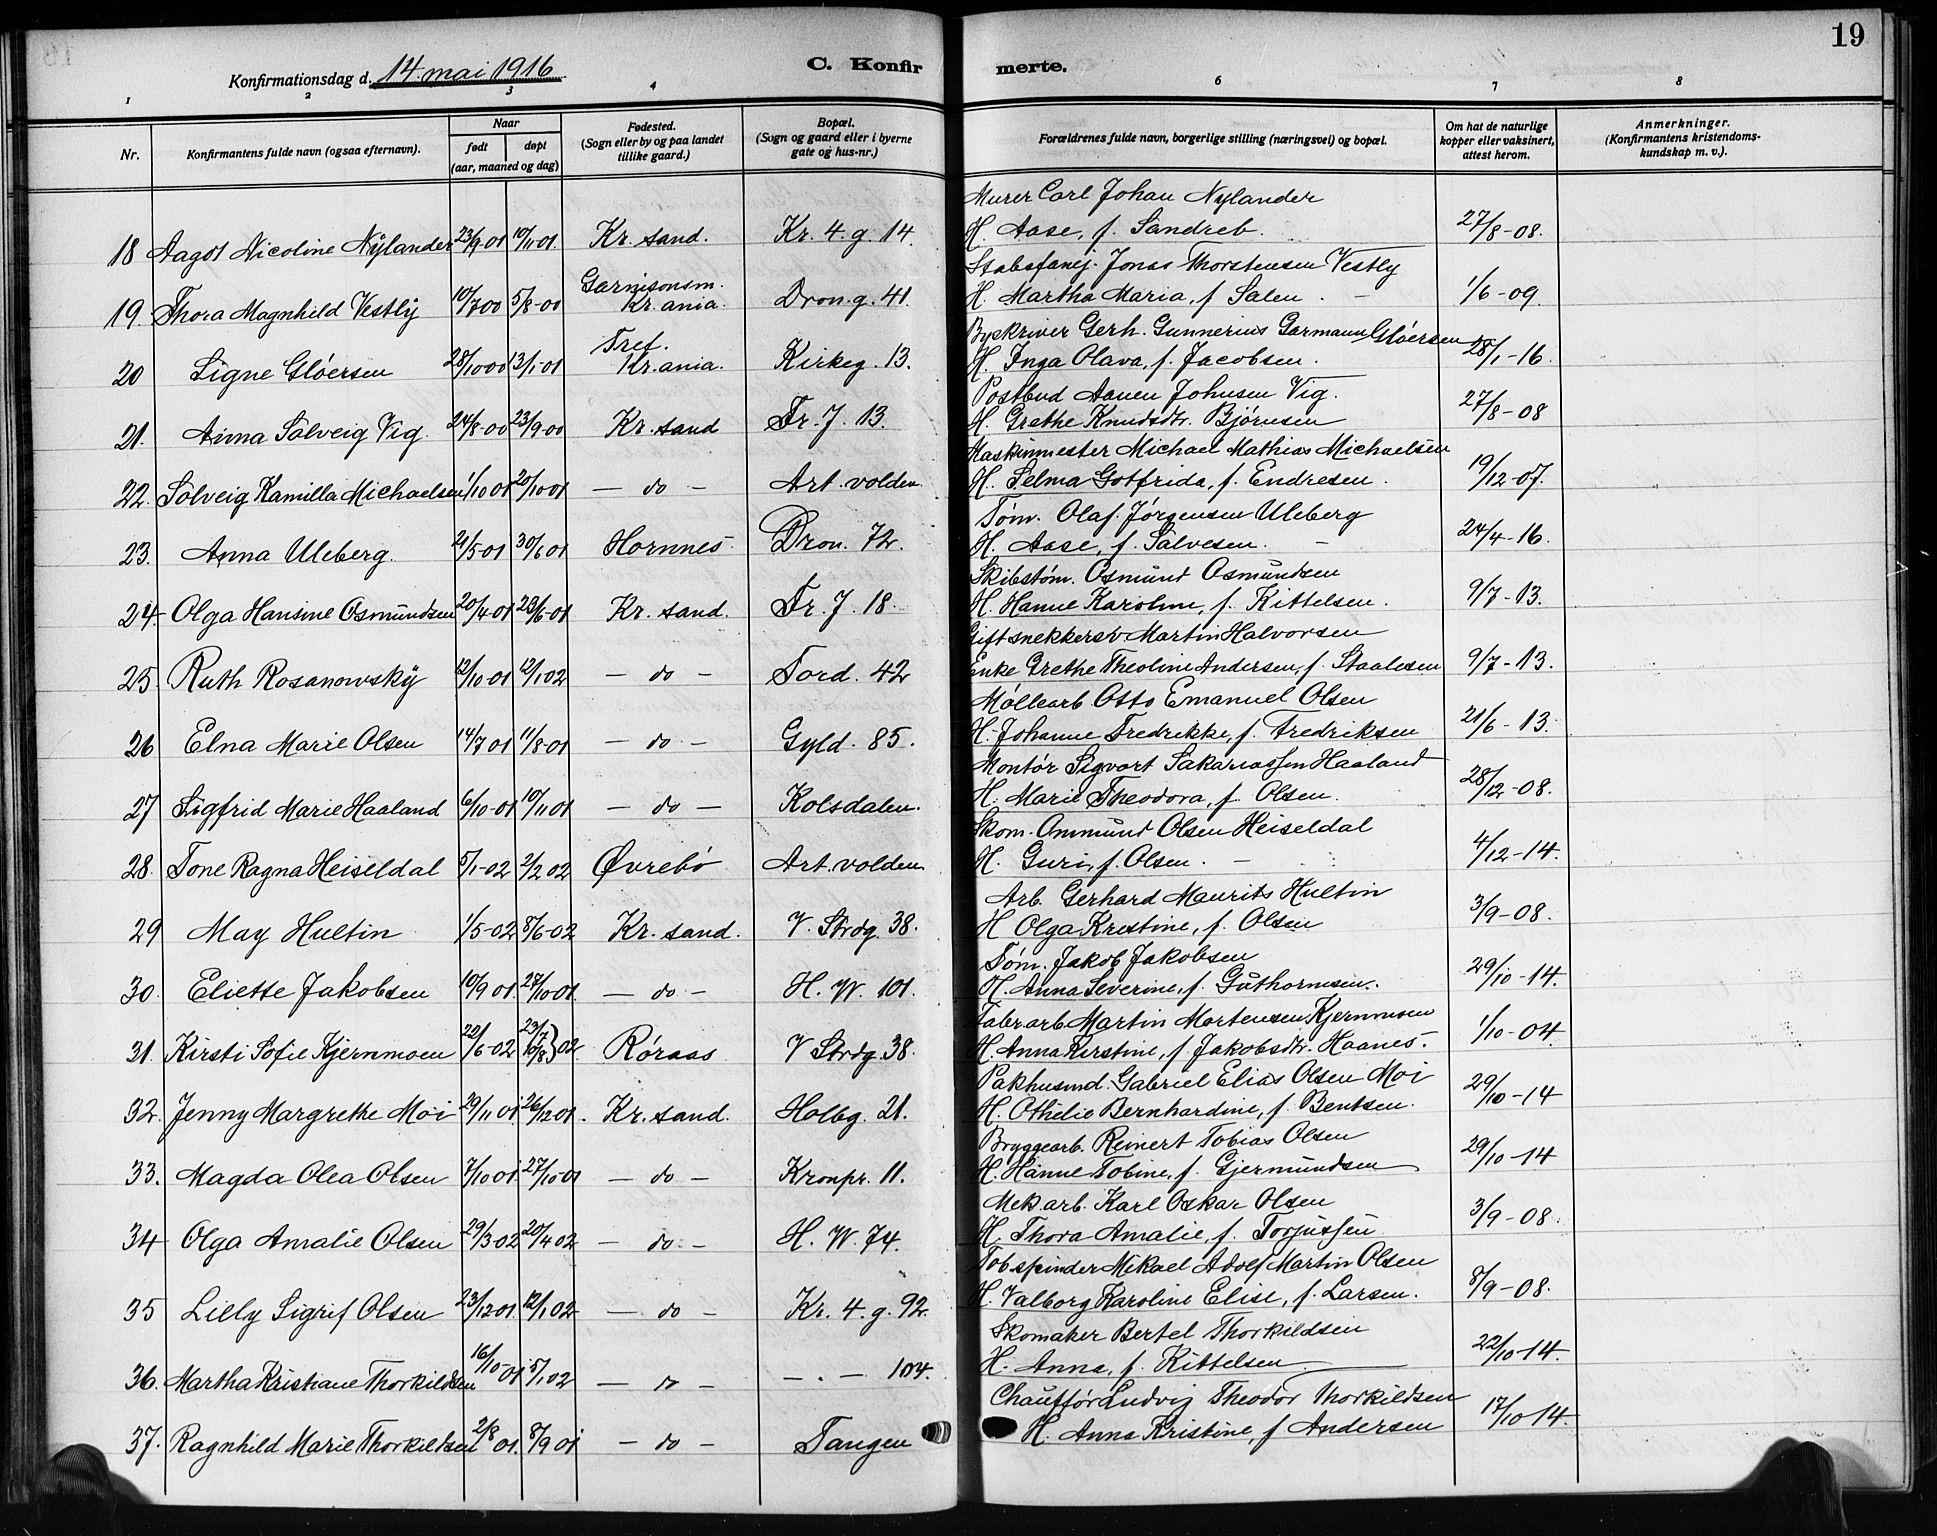 19
Konfirmationsdag d. 14. mai 1916
C. Konfir merte.
1 2 3 4 6 7 8
Nr. Konfirmantens fulde navn (ogsaa efternavn). Naar født døpt (aar, maaned og dag) Fødested. (Sogn eller by og paa landet tillike gaard.) Bopæl. (Sogn og gaard eller i byerne gate og hus-nr.) Forældrenes fulde navn, borgerlige stilling (næringsvei) og bopæl. Om hat de naturlige kopper eller vaksinert, attest herom. Anmerkninger. (Konfirmantens kristendoms-kundskap m. v.).
Murer Carl Johan Nylander
18 Aagot Nicoline Nylander 23/9-01 10/11 01 Kr. sand. Kr. 4. g. 14. H. Aase, f. Sandreb. 27/8-08.
Stabsfanej. Jonas Thorstensen Vestly
19. Thora Magnhild Vestly 10/7 00 5/8-00 Garnisonsm. Kr. ania. Dron. g. 41. H. Martha Maria, f. Salen. 1/6-09.
Byskriver Gerh. Gunnerius Garmann Gløersen
20 Signe Gløersen 28/10 00 13/1-01 Tref. Kr. ania. Kirkeg. 13. H. Inga Olava, f. Jacobsen. 28/1-16.
Postbud Aanen Johnsen Vig.
21. Anna Solveig Vig. 24/8-00 23/9-00 Kr. sand Fr. J. 13. H. Grethe Knudsdtr. Bjørnsen 27/8-08
Maskinmester Michael Mathias Michaelsen
22. Solveig Kamilla Michaelsen 1/10 01 20/10 01 — do — Art. volden. H. Selma Gotfrida, f. Endresen. 19/12-07.
Tøm. Olaf Jørgensen Uleberg
23. Anna Uleberg. 21/5-01 30/6 01 Hornnes. Dron. 72. H. Aase, f. Salvesen. — 24/4-16.
Skibstøm. Osmund Osmundsen
24. Olga Hansine Osmundsen 20/4-01 28/6-01 Kr. sand. Fr. J. 18. H. Hanne Karoline, f. Kittelsen. 9/7-13.
Gift snekkersv. Martin Halvorsen
25. Ruth Rosanowsky 12/10-01 12/1 02 — do — Tord. 42 Enke Grethe Theoline Andersen, f. Staalesen 9/7-13.
Møllearb Otto Emanuel Olsen
26 Elna Marie Olsen 14/7 01 11/8-01 — do — Gyld. 85. H. Johanne Fredrikke, f. Fredriksen 21/6-13.
Montør Sigvart Sakariassen Haaland
27 Sigfrid Marie Haaland 6/10-01 10/11 01 — do — Kolsdalen. H. Marie Theodora, f. Olsen. 28/12-08.
Skom. Ommund Olsen Heiseldal
28. Tone Ragna Heiseldal 5/1-02 2/2 02 Øvrebø Art. volden. H. Guri, f. Olsen. — 4/12-14.
Arb. Gerhard Maurits Hultin
29 May Hultin 1/5-02 8/6-02 Kr. sand. V. Strdg. 38. H Olga Kristine, f. Olsen 3/9-08.
Tøm. Jakob Jakobsen
30. Eliette Jakobsen 10/9 01. 27/10 01. — do — H. W. 101. H. Anna Severine, f. Guthormsen. 29/10-14.
Fabr. arb. Martin Mortensen Kjernmoen
31. Kirsti Sofie Kjernmoen 22/6-02 23/7 10/8 } 02 Røraas V Strdg. 38. H. Anna Kirstine, f. Jakobsdtr. Haanes. 1/10-04.
Pakhusmd. Gabriel Elias Olsen Moi
32. Jenny Margrethe Moi 29/11 01 26/12 01. Kr. sand. Holbg. 21. H. Othelie Bernhardine, f. Bentsen. 29/10-14
Bryggearb. Reinert Tobias Olsen
33. Magda Olea Olsen 7/10 01. 27/10 01 — do — Kronpr. 11. H. Hanne Tobine, f. Gjermundsen 29/10-14
Mek. arb. Karl Oskar Olsen
34 Olga Amalie Olsen 29/3-02 20/4 02 — do — H. W. 74. H. Thora Amalie, f. Torjussen. 3/9-08.
Tobspinder Mikael Adolf Martin Olsen
35 Lilly Sigrif Olsen 23/12 01. 12/1 02 — do — Kr. 4. g. 92. H. Valborg Karoline Elise, f. Larsen. 8/9-08.
Skomaker Bertel Thorkildsen
36. Martha Kristiane Thorkildsen 16/10-01 5/1 02 — do — — . — 104. H. Anna, f. Kittelsen. 22/10-14.
Chauffør Ludvig Theodor Thorkildsen
37. Ragnhild Marie Thorkildsen 2/8 01. 8/9 01 — do — Tangen H. Anna Kristine, f Andersen 17/10-14.